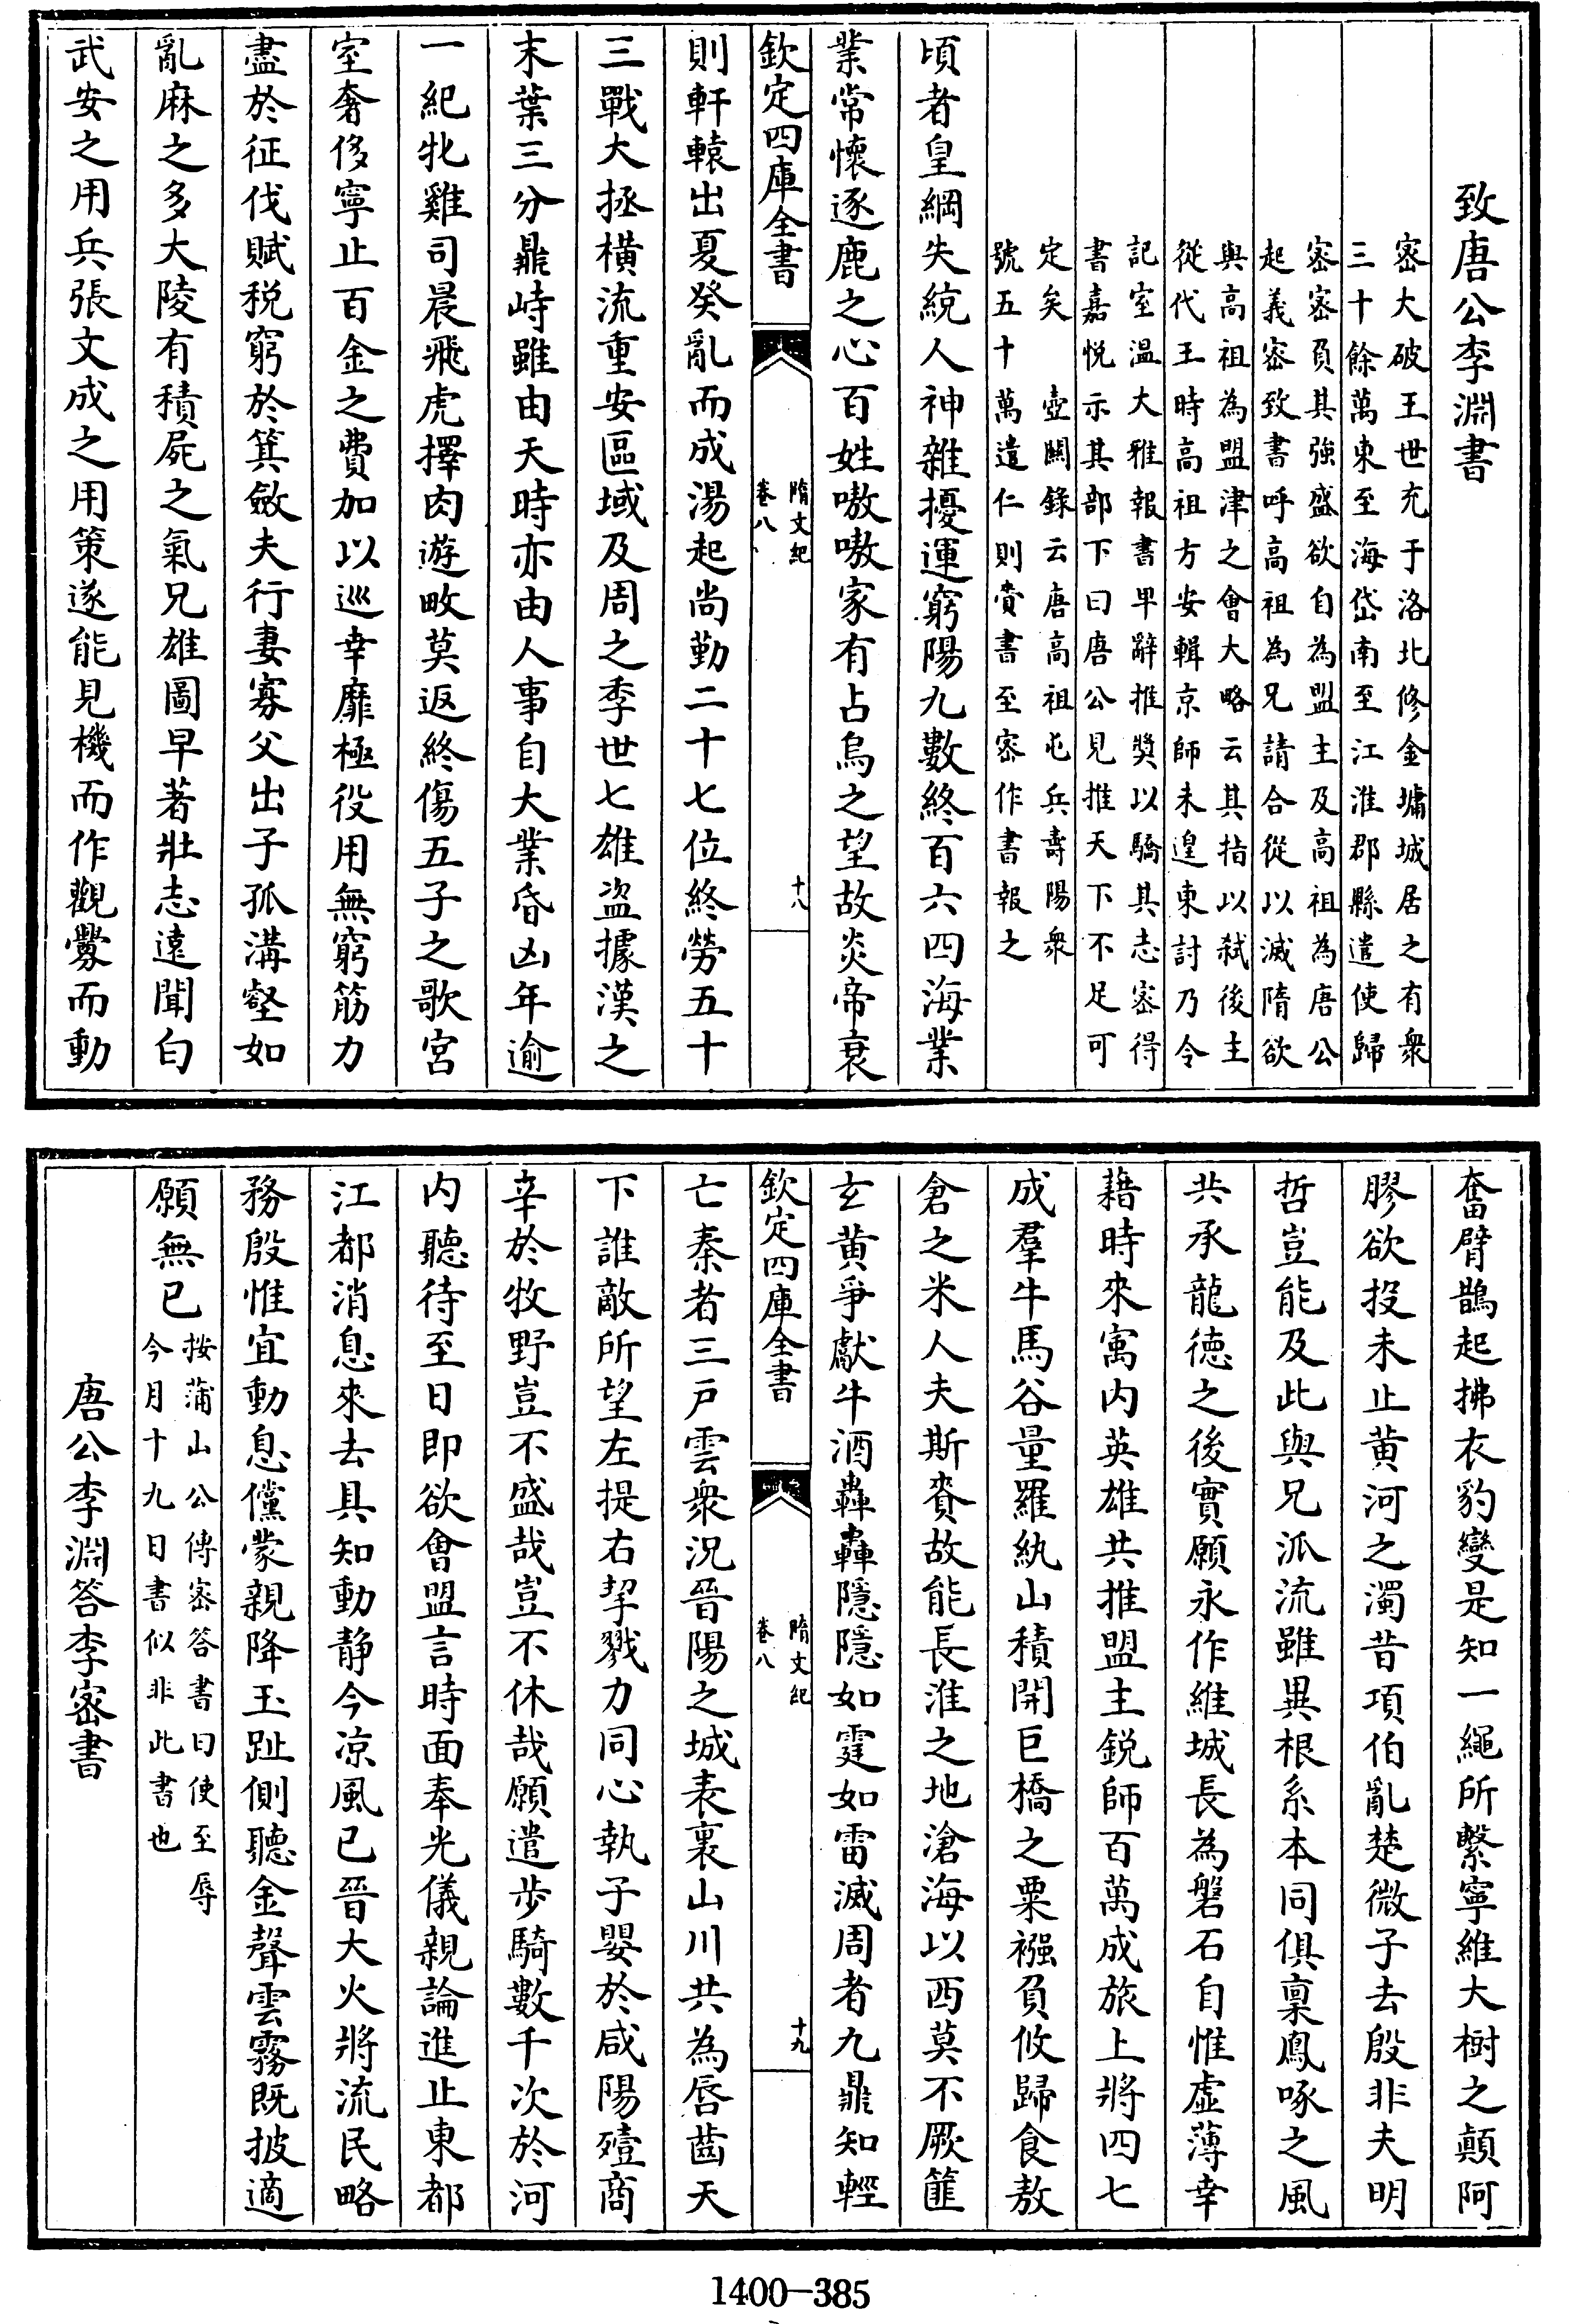 致唐公李淵書
密大破王世充于洛北修金墉城居之有衆
三十餘萬東至海岱南至江淮郡縣遣使歸
密密負其強盛欲自為盟主及高祖為唐公
起義密致書呼高祖為兄請合從以滅隋欲
與高祖為盟津之會大略云其指以弒後主
從代王時高祖方安輯京師未遑東討乃令
記室温大雅報書早辭推獎以驕其志密得
書嘉悦示其部下曰唐公見推天下不足可
定矣　壺闗錄云唐高祖屯兵壽陽衆
號五十萬遣仁則賫書至密作書報之
頃者皇綱失統人神雜擾運窮陽九數終百六四海業
業常懷逐鹿之心百姓嗷嗷家有占烏之望故炎帝衰
欽定四庫全書
隋文紀
卷八
十八
則軒轅出夏癸亂而成湯起尚勤二十七位終勞五十
三戰大拯橫流重安區域及周之季世七雄盜據漢之
末葉三分鼎峙雖由天時亦由人事自大業昏凶年逾
一紀牝雞司晨飛虎擇肉遊畋莫返終傷五子之歌宮
室奢侈寧止百金之費加以巡幸靡極役用無窮筋力
盡於征伐賦税窮於箕斂夫行妻寡父出子孤溝壑如
亂麻之多大陵有積屍之氣兄雄圖早著壯志遠聞白
武安之用兵張文成之用策遂能見機而作觀釁而動
奮臂鵲起拂衣豹變是知一繩所繫寧維大樹之顛阿
膠欲投未止黄河之濁昔項伯亂楚微子去殷非夫明
哲豈能及此與兄派流雖異根系本同俱稟鳳啄之風
共承龍徳之後實願永作維城長為磐石自惟虚薄幸
藉時來寓内英雄共推盟主鋭師百萬成旅上將四七
成羣牛馬谷量羅紈山積開巨橋之粟襁負攸歸食敖
倉之米人夫斯賚故能長淮之地滄海以西莫不厥篚
玄黄爭獻牛酒轟轟隱隱如霆如雷滅周者九鼎知輕
欽定四庫全書
隋文紀
卷八
十九
亡秦者三戸雲衆況晉陽之城表裏山川共為唇齒天
下誰敵所望左提右挈戮力同心執子嬰於咸陽殪商
辛於牧野豈不盛哉豈不休哉願遣步騎數千次於河
内聽待至日即欲會盟言時面奉光儀親論進止東都
江都消息來去具知動静今凉風已晉大火將流民略
務殷惟宜動息儻蒙親降玉趾側聽金聲雲霧既披適
願無已
按蒲山公傳密答書曰使至辱
今月十九日書似非此書也
唐公李淵答李密書
1400—385